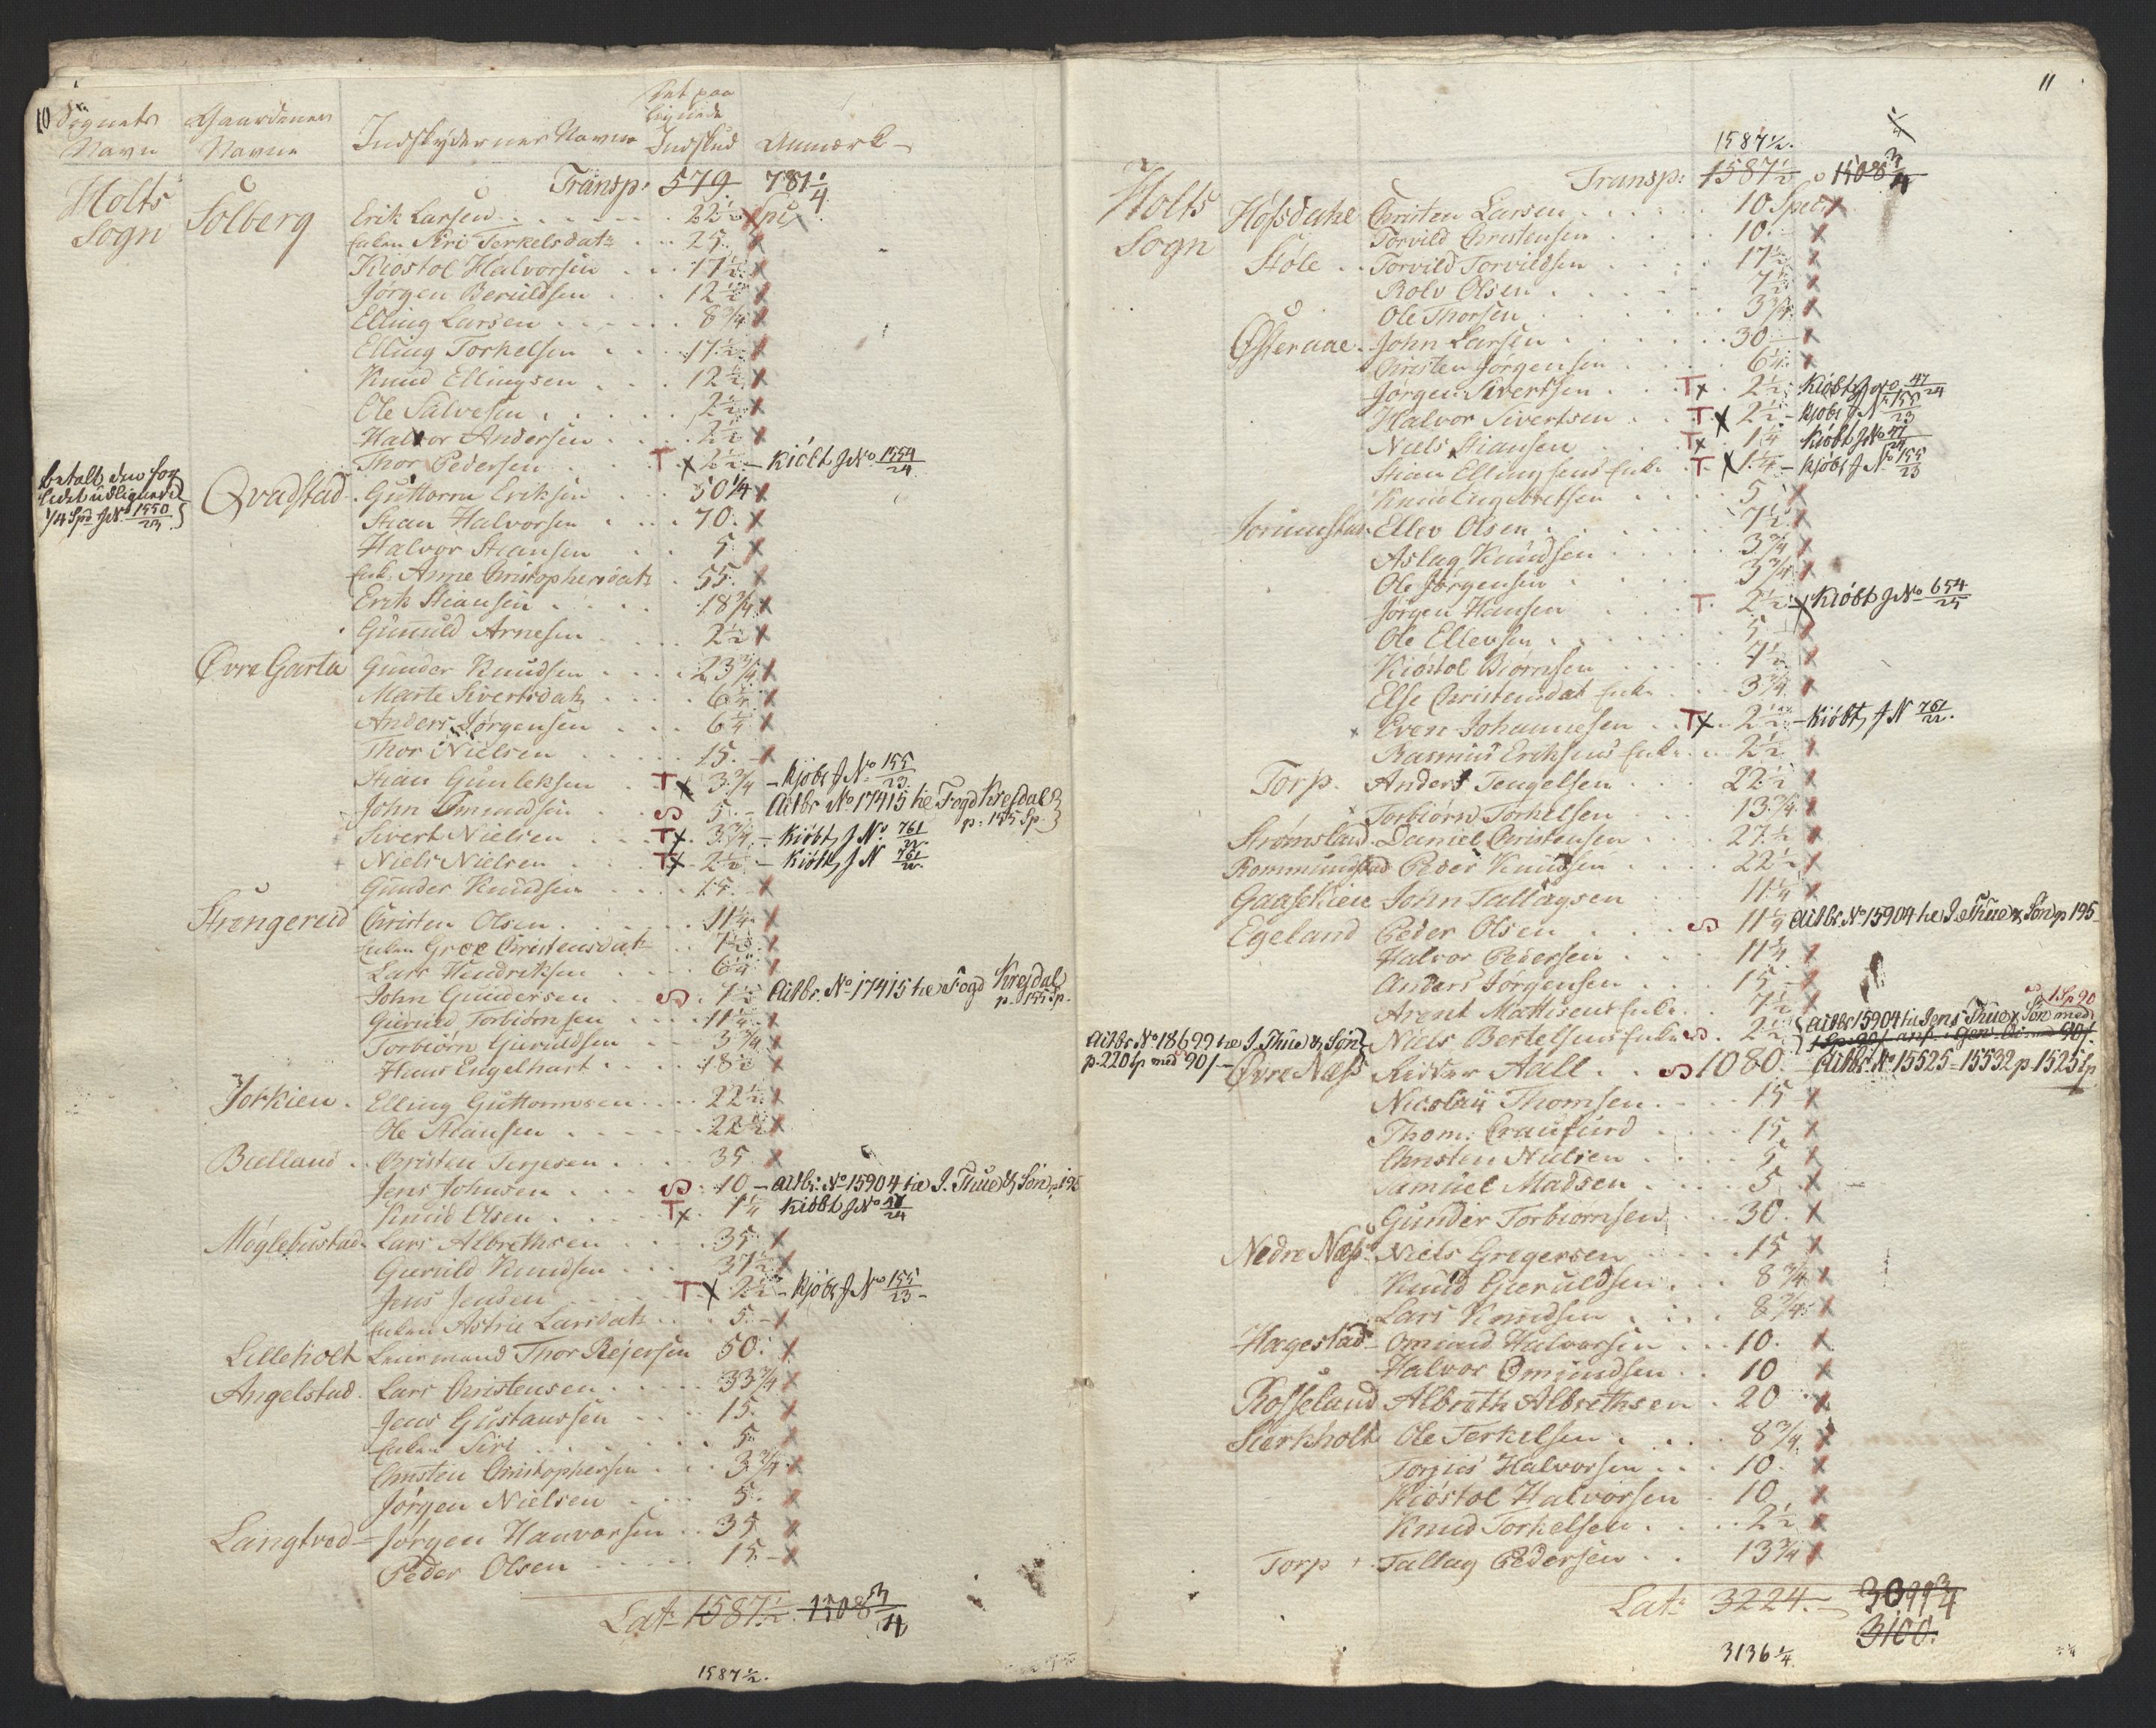 10
Sognets Navn
Gaardenes Navne
Indskydernes Navne
Det paa lignede Indskud
Anmærk
Transp: 579 781 1/4
Holts Sogn
Solberg Erik Larsen 22 1/2
Enken Siri Terkelsdatr 25
Kiøstol Halvorsen 17 1/2
Jørgen Beruldsen 12 1/2
Elling Larsen 8 3/4
Elling Torkelsen 17 1/2
Knud Ellingsen 12 1/2
Ole Salvesen 2 1/2
Halvor Andersen 2 1/2
Thor Pedersen T x 2 1/2 - Kiöbt J No 1554/24
betalt den for
lidet udlignede
1/4 Spd J No 1550/23
Qvadstad Guttorm Eriksen 50 1/4
Stian Halvorsen 70
Halvor Stiansen 5
Enk. Anne Christophersdatr 55
Erik Stiansen 18 3/4
Gunuld Arnesen 2 1/2
Øvre Garta Gunder Knudsen 23 3/4
Marte Sivertsdatr 6 1/4
Anders Jørgensen 6 1/4
Thor Nielsen 15
Stian Gunleksen T x 3 3/4 - Kjöbt J No 155/23
John Omundsen 5 - Actbr No 17415 til Fogd Kresdal
p. 155 Sp.
Sivert Nielsen T x 3 3/4 - Kiöbt J No 761/22
Niels Nielsen T x 2 1/2 - Kiöbt J N 761/22
Gunder Knudsen 15
Strengereid Christen Olsen 11 1/4
Enken Groe Christensdatr 7 1/2
Lars Hendriksen 6 1/4
John Gundersen 7 1/2 Actbr. No 17415 til Fogd Kresdal
p. 155 Sp.
Gieruld Torbiørnsen 11 1/4
Torbiørn Gieruldsen 3 3/4
Hans Engelhart 18 3/4
Jorkien Elling Guttormsen 22 1/2
Ole Stiansen 22 1/2
Bielland Christen Terjesen 35
Jens Johnsen 10 - Actbr. No 15904 til J. Thue & Søn p. 195
Knud Olsen T x 1 1/4 Kiöbt J No 47/24
Møglebustad Lars Albrethsen 35
Gieruld Knudsen 37 1/2
Jens Jensen T x 2 1/2 - Kjöbt J No 155/23 -
Enken Astrie Larsdatr 5
Lilleholt Lensmand Thor Rejersen 50
Angelstad Lars Christensen 33 3/4
Jens Gustavsen 15
Enken Siri 5
Christen Christophersen 3 3/4
Jørgen Nielsen 5
Langtved Jørgen Hanvorsen 35
Peder Olsen 15
Lat: 1587 1/2 1508 3/4
1587 1/2.
11
1587 1/2.
Transp: 1587 1/2 1508 3/4
Holts Sogn
Hofsdahl Christen Larsen 10 Spec
Torvild Christensen 10
Støle Torvild Torvildsen 17 1/2
Rolv Olsen 7 1/2
Ole Thorsen 3 3/4
Østeraae John Larsen 30
Christen Jørgensen 6 1/4
Jørgen Sivertsen T x 2 1/2 Kiöbt J No 47/24
Halvor Sivertsen T x 2 1/2 - Kjöbt J No 155/23
Niels Stiansen T x 1 1/4 Kiöbt J No 47/24
Stian Ellingsens Enke T x 1 1/4 - Kjöbt J No 155/23
Knud Engebretsen 5
Jorunstad Ellev Olsen 7 1/2
Aslag Knudsen 3 3/4
Ole Jørgensen 3 3/4
Jørgen Hansen T. 2 1/2 x Kiöbt J No 654/25
Ole Ellevsen 5
Kiøstol Biørnsen 7 1/2
Else Christensdat Enke 3 3/4
Even Johannesen T x 2 1/2 - Kiöbt J N 761/22.
Rasmus Eriksens Enke 2 1/2
Torp. Anders Tengelsen 22 1/2
Torbiørn Torkelsen 13 3/4
Strømsland Daniel Christensen 27 1/2
Rommundstad Peder Knudsen 22 1/2
Gaaskien John Tallagsen 11 1/4
Egeland Peder Olsen 11 1/4 Actbr. No 15904 til J. Thue & Søn p 195
Halvor Pedersen 11 1/4
Anders Jørgensen 15
Arent Mattisens Enke 7 1/2
1 Sp 90
Niels Bertelsens Enke 2 1/2 Actbr 15904 til Jens Thue & Søn med
Actbr No 18699 til J. Thue & Søn
p. 220 Sp med 90 s -
Øvre Næs Reister Aall 1080 Actbr. No 15525 - 15532 p 1525 Sp
Nicolay Thomsen 15
Thom: Craufurd 15
Christen Nielsen 5
Samuel Madsen 5
Gunder Torbiørnsen 30
Nedre Næs Niels Gregersen 15
Knuld Gieruldsen 8 3/4
Lars Knudsen 8 3/4
Hagestad Omund Halvorsen 10
Halvor Omundsen 10
Rosseland Albreth Albrethsen 20
Lierkholt Ole Terkelsen 8 3/4
Torjus Halvorsen 10
Kiøstol Halvorsen 10
Knud Torkelsen 2 1/2
Torp Tallag Pedersen 13 3/4
Lat: 3224. 3099 3/4
3100.
3136 1/4